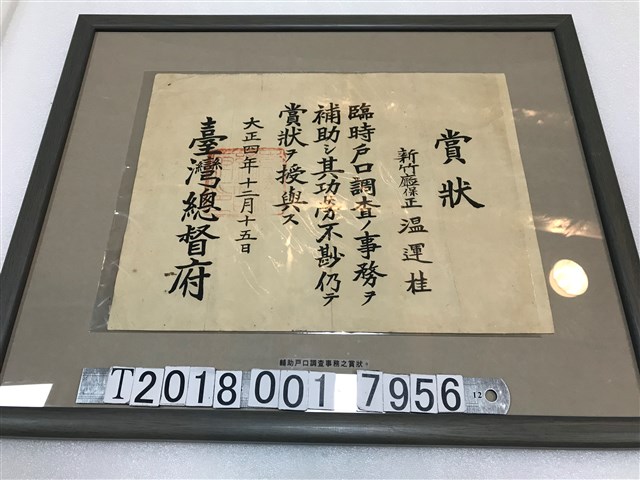 賞狀
新竹廳保正 溫運桂
臨時戶口調查ノ事務ヲ
補助シ其功勞不尠仍テ
賞狀ヲ授與ス
大正四年十二月十五日
臺灣總督府
輔助戶口調查事務之賞狀。
T2018 001 7956
12